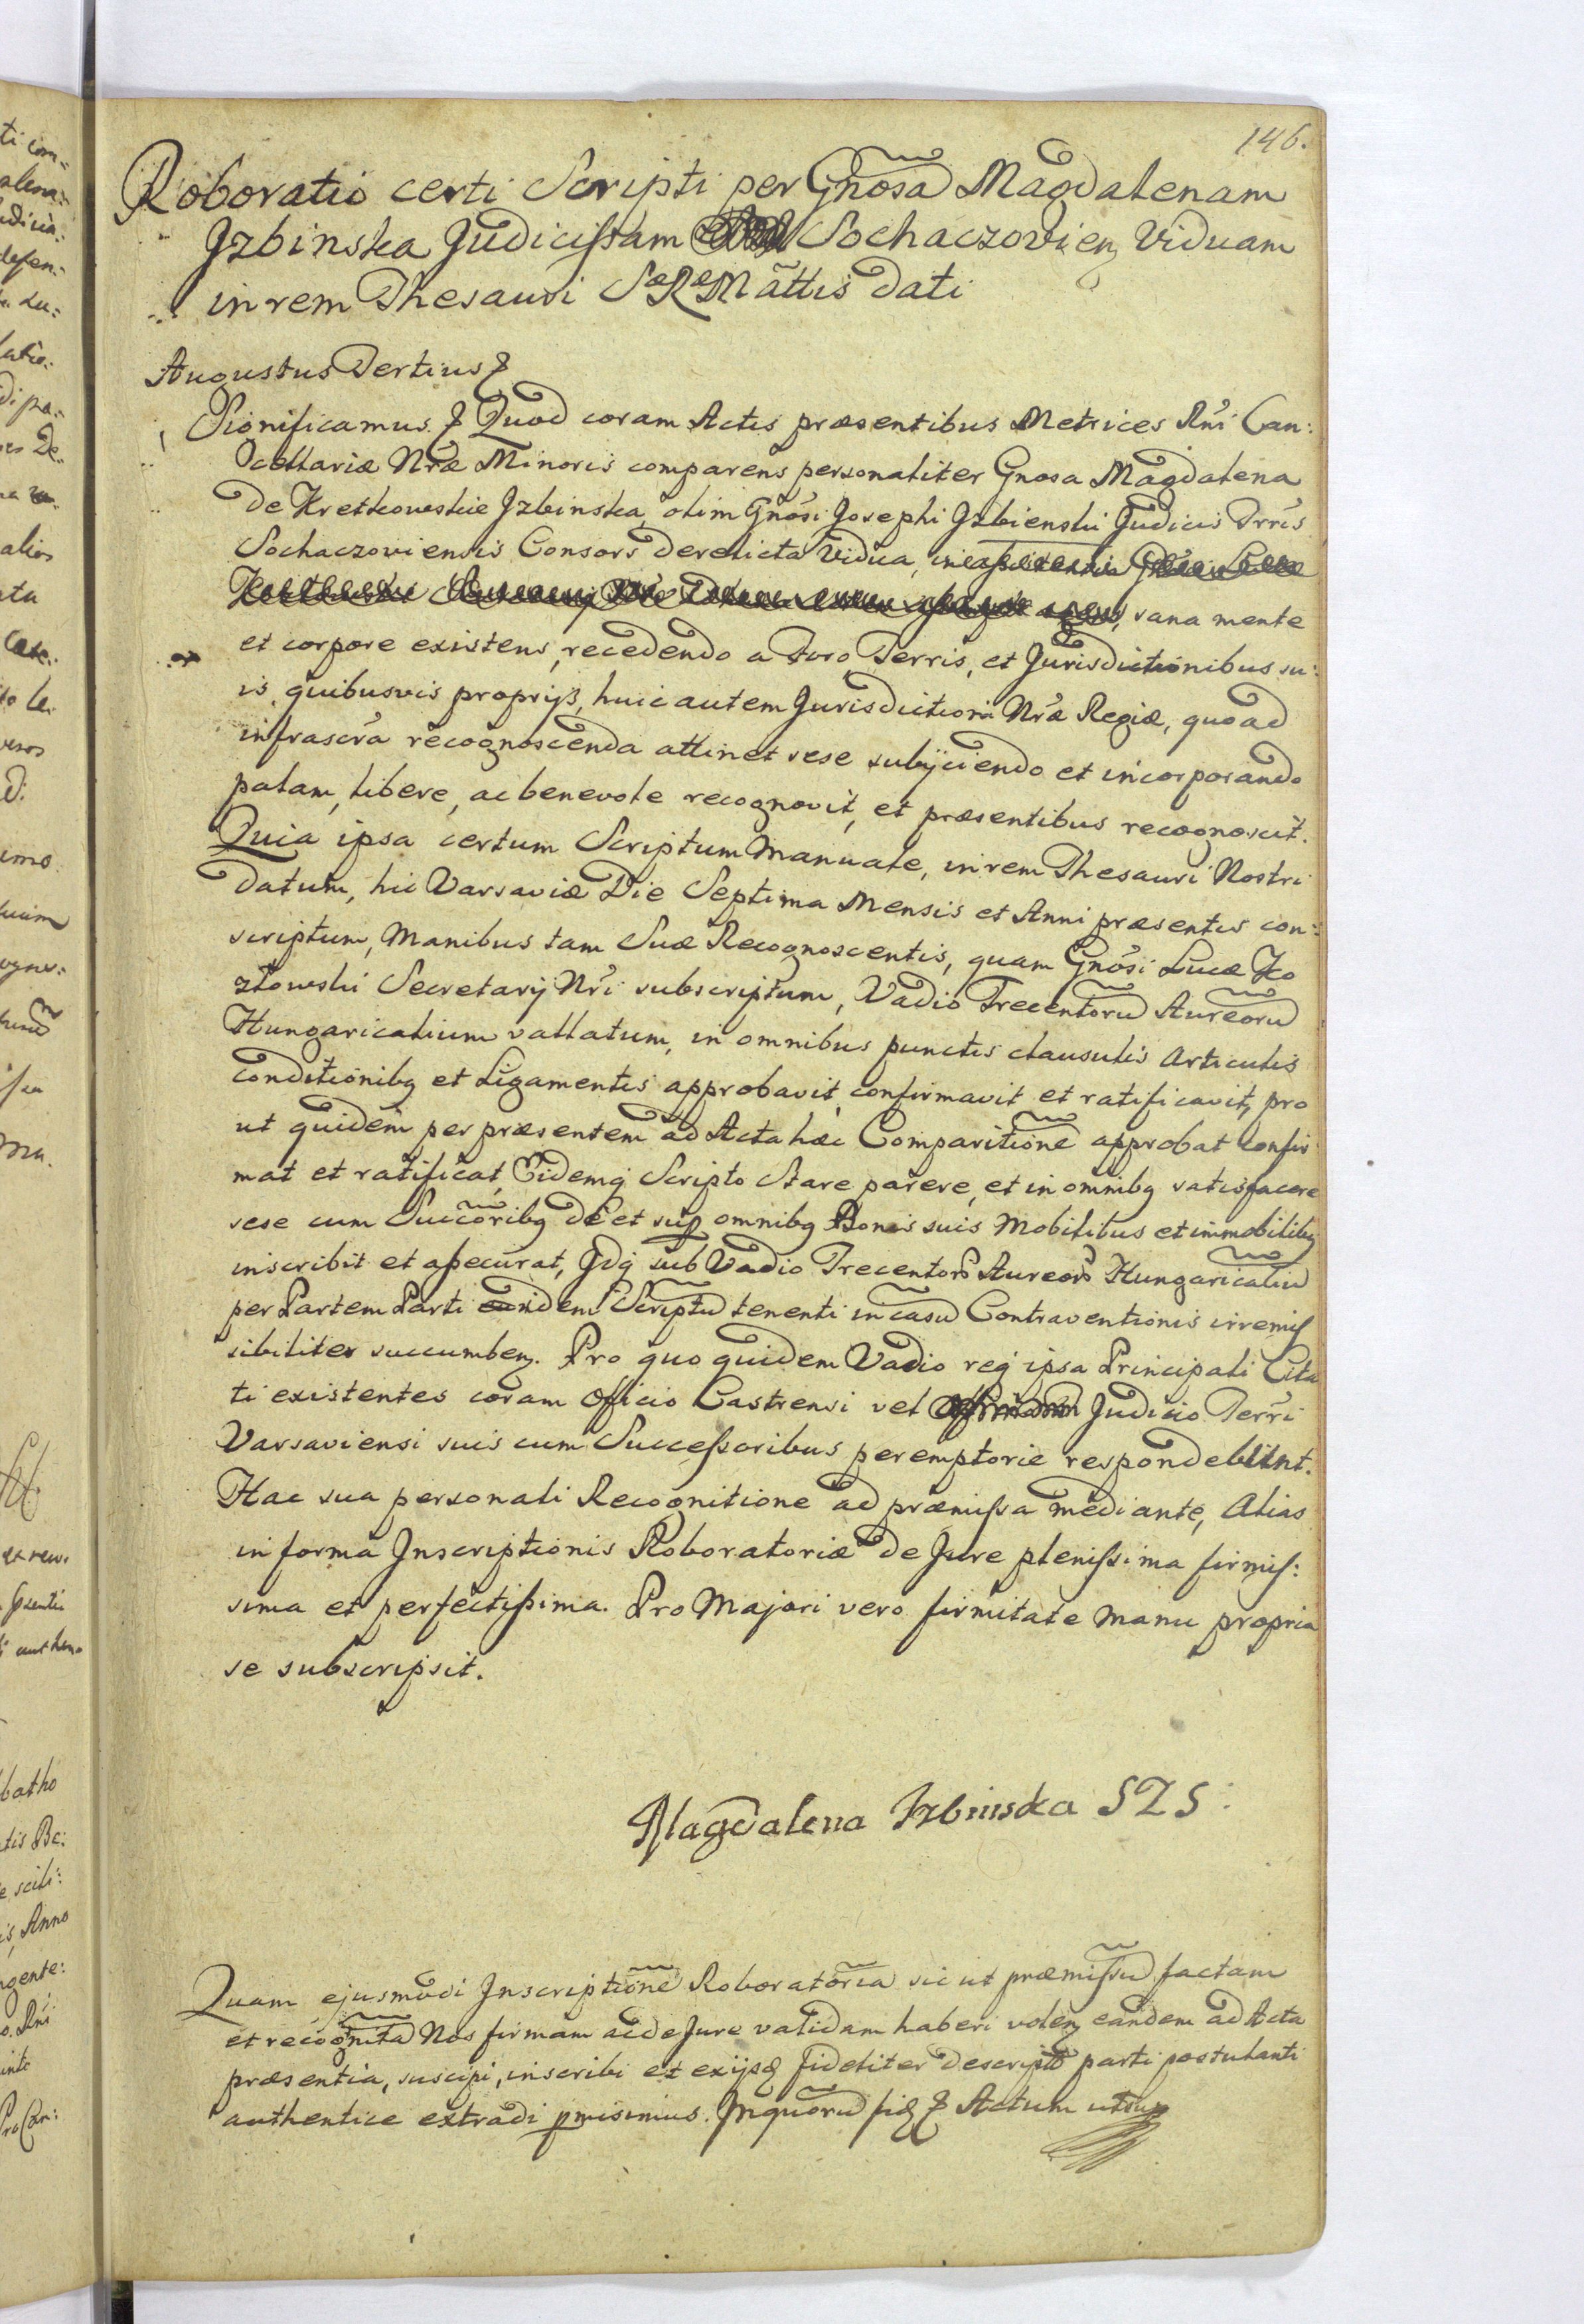 146.
Roboratio certi Scripti per Gnosã Magdalenam
Jzbinska Judicissam Sochaczovieñ Viduam
in rem Thesauri Sæ Ræ Mãttis dati
Augustus Tertius &
Significamus & Quod coram Actis præsentibus Metrices Rni Can:
cellariæ Nræ Minoris comparens personaliter Gnosa Magdalena
de Kretkowskie Jzbinska, olim Gnosi Josephi Jzbienski Judicis Trris
Sochaczoviensis Consors derelicta Vidua,
sana mente
et corpore existens, recedendo a Foro, Terris, et Jurisdictionibus su:
is, quibusvis proprijs, huic autem Jurisdictioni Nræ Regiæ, quoad
infrascra recognoscenda attinet sese subijciendo et incorporando
palam, libere, ac benevole recognovit, et præsentibus recognoscit.
Quia ipsa certum Scriptum Manuale, in rem Thesauri Nostri
datum, hic Varsaviæ Die Septima Mensis et Anni præsentis con:
scriptum, Manibus tam Suæ Recognoscentis, quam Gnosi Lucæ Ko
złowski Secretarij Nri subscriptum, Vadio Trecentorũ Aureorũ
Hungaricalium vallatum, in omnibus punctis clausulis Articulis
Conditionibq et Ligamentis approbavit, confirmavit et ratificavit, pro
ut quidem per præsentem ad Acta hæc Comparitionẽ approbat confir
mat et ratificat, Eidemq Scripto Stare parere, et in omnibq satisfacere
sese cum Succoribq de et sup omnibq Bonis suis Mobilibus et immobilibq
inscribit et assecurat, Jdq sub Vadio Trecentorũ Aureorũ Hungaricaliũ
per Partem Parti eidem Scriptũ tenenti in casu Contraventionis irremis
sibiliter succumbeñ. Pro quo quidem Vadio req ipsa Principali Cita
ti existentes coram Officio Castrensi vel Judicio Terri
Varsaviensi suis cum Successoribus peremptorie respondebunt.
Hac sua personali Recognitione ad præmissa mediante, Alias
in forma Jnscriptionis Roboratoriæ de Jure plenissima firmis:
sima et perfectissima. Pro Majori vero firmitate manu propria
se subscripsit.
Magdalena Jzbinska S Z S:
Quam ejusmodi Jnscriptionẽ Roboratoriã sic ut præmissũ factam
et recognitã Nos firmam ac de Jure validam haberi voleñ eandem ad Acta
præsentia, suscipi, inscribi et exijsq fideliter descriptã parti postulanti
authentice extradi pmisimus. Jnquorũ fidẽ & Actum utsup